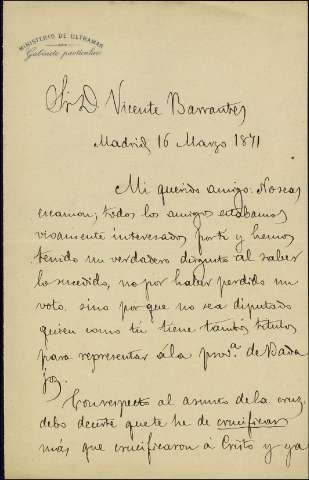 MINISTERIO DE ULTRAMAR
Gabinete particular
Sr. D. Vicente Barrantes
Madrid 16 Marzo 1871
Mi querido amigo: No seas
escamon; todos los amigos estabamos
vivamente interesados por ti y hemos
tenido un verdadero disgusto al saber
lo sucedido, no por haber perdido un
voto, sino por que no sea diputado
quien como tú tiene tantos titulos
para representar á la prov.ª de Bada
joz.
Con respecto al asunto de la cruz,
debo decirte que te he de crucificar
más que crucificaron á Cristo y ya